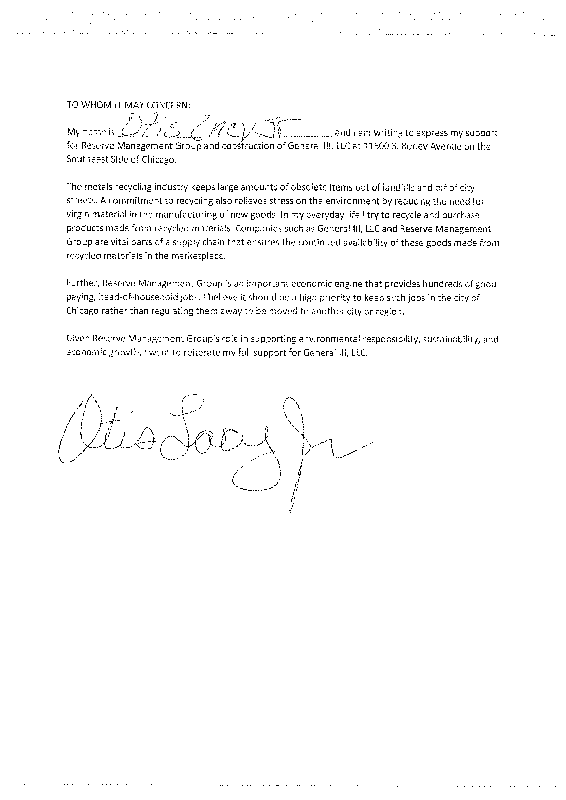 TO WHOM IT MAY CONCERN:
My name is Otis Lacy Jr and I am writing to express my support
for Reserve Management Group and construction of General III, LLC at 11600 S. Burley Avenue on the
Southeast Side of Chicago.
The metals recycling industry keeps large amounts of obsolete items out of landfills and out of city
streets. A commitment to recycling also relieves stress on the environment by reducing the need for
virgin material in the manufacturing of new goods. In my everyday life I try to recycle and purchase
products made from recycled materials. Companies such as General III, LLC and Reserve Management
Group are vital parts of a supply chain that ensures the continued availability of these goods made from
recycled materials in the marketplace.
Further, Reserve Management Group is an important economic engine that provides hundreds of good
paying, head-of-household jobs. I believe it should be a high priority to keep such jobs in the city of
Chicago rather than regulating them away to be moved to another city or region.
Given Reserve Management Group's role in supporting environmental responsibility, sustainability, and
economic growth, I want to reiterate my full support for General III, LLC.
Otis Lacy Jr